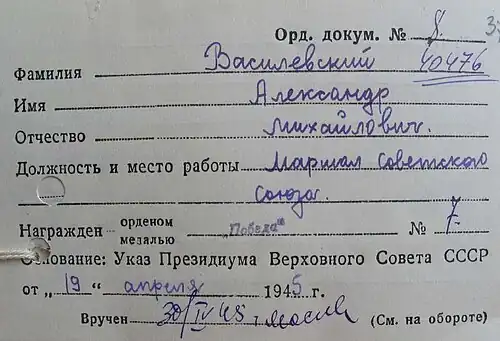 Орд. докум. № 8.
37
40476
Фамилия Василевский
Имя Александр
Отчество Михайлович.
Должность и место работы Маршал Советского
Союза.
Награжден орденом медалью „Победа" № 7.
Основание: Указ Президиума Верховного Совета СССР
от „19" апреля 1945 г.
Вручен 30/IV 45 г. (См. на обороте)